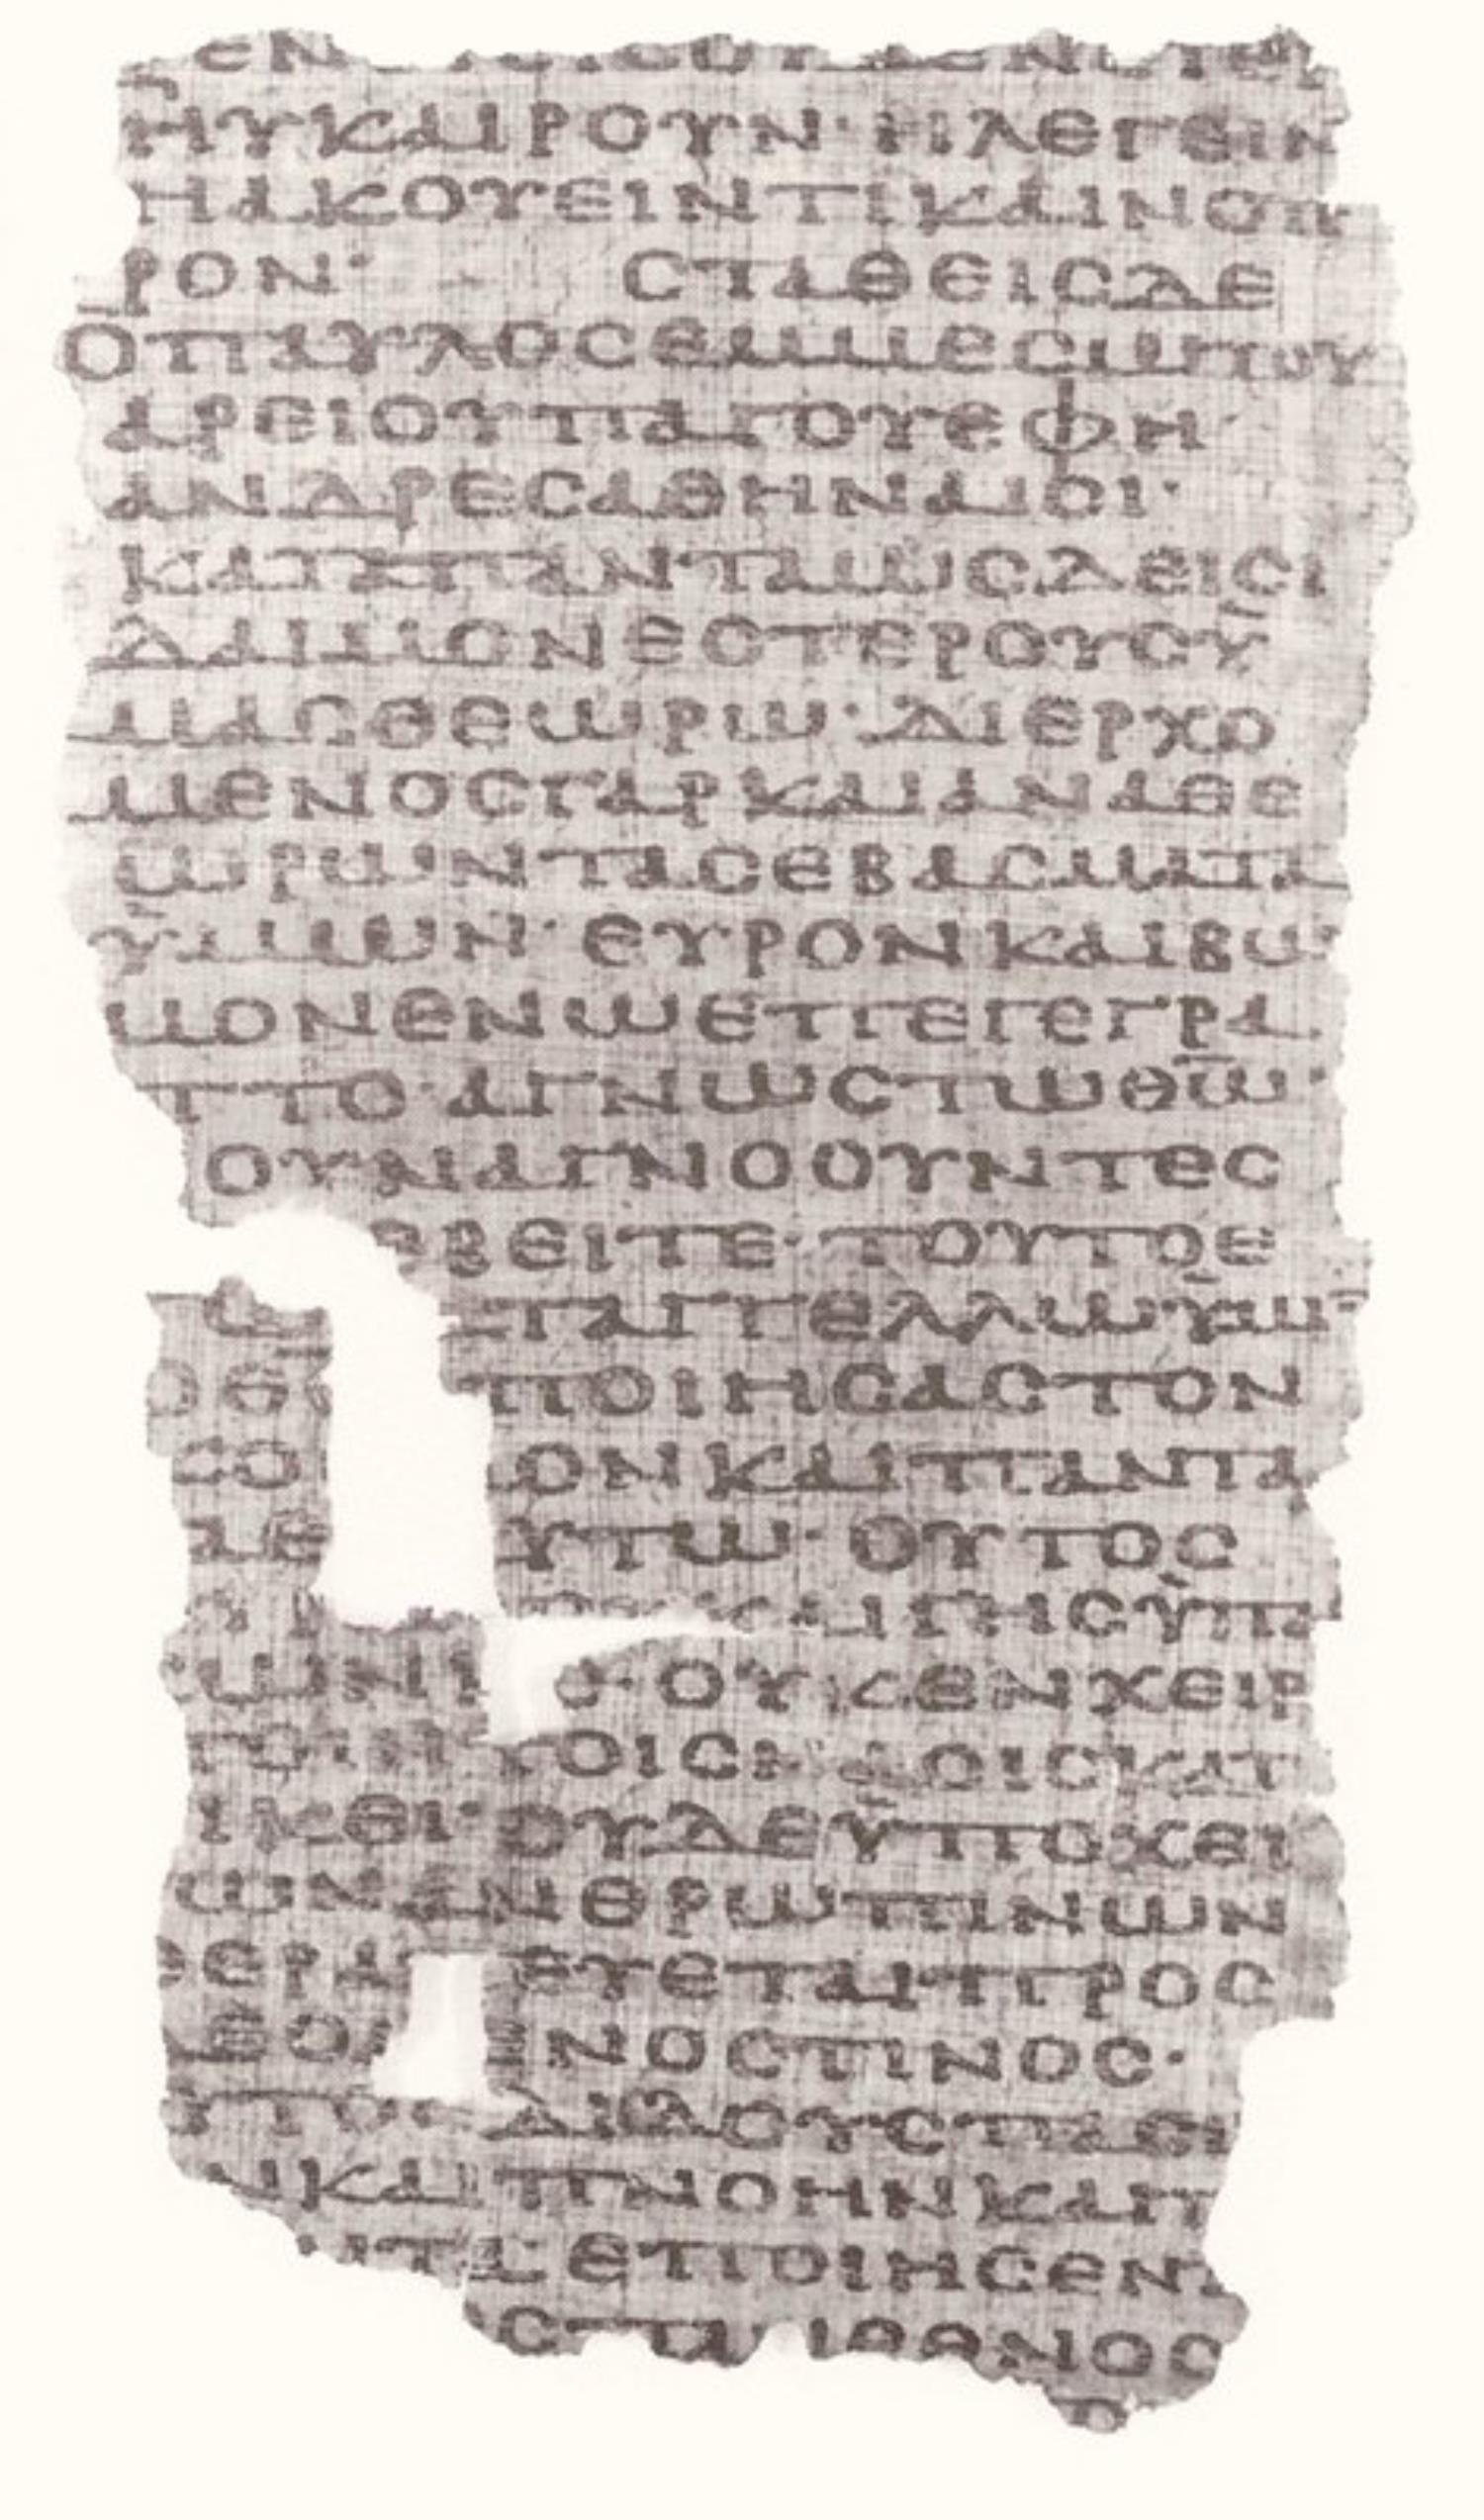 ΕΝ
ΗΥΚΑΙΡΟΥΝ· Η ΛΕΓΕΙΝ
Η ΑΚΟΥΕΙΝ ΤΙ ΚΑΙΝΟΤΕ
ΡΟΝ· ϹΤΑΘΕΙϹ ΔΕ
Ο ΠΑΥΛΟϹ ΕΜΜΕϹΩ ΤΟΥ
ΑΡΕΙΟΥ ΠΑΓΟΥ ΕΦΗ·
ΑΝΔΡΕϹ ΑΘΗΝΑΙΟΙ·
ΚΑΤΑ ΠΑΝΤΑ ΩϹ ΔΕΙϹΙ
ΔΑΙΜΟΝΕϹΤΕΡΟΥϹ Ϋ
ΜΑϹ ΘΕΩΡΩ· ΔΙΕΡΧΟ
ΜΕΝΟϹ ΓΑΡ ΚΑΙ ΑΝΑΘΕ
ΩΡΩΝ ΤΑ ϹΕΒΑϹΜΑΤΑ
ΫΜΩΝ· ΕΥΡΟΝ ΚΑΙ ΒΩ
ΜΟΝ ΕΝ Ω ΕΠΕΓΕΓΡΑ
ΠΤΟ· ΑΓΝΩϹΤΩ Θ̅Ω̅·
ΟΥΝ ΑΓΝΟΟΥΝΤΕϹ
ΕΒΕΙΤΕ· ΤΟΥΤΟ Ε
ΤΑΓΓΕΛΛΩ ΫΜΙ̅
Ο ΘϹ ΠΟΙΗϹΑϹ ΤΟΝ
ΚΟ ΟΝ ΚΑΙ ΠΑΝΤΑ
ΤΑ Ε ΥΤΩ· ΟΥΤΟϹ
ΚΑΙ ΓΗϹ ΫΠ
ΩΝ Κ Ϲ· ΟΥΚ ΕΝ ΧΕΙΡ
ΠΟΙΗΤΟΙϹ ΝΑΟΙϹ ΚΑΤ
ΙΚΕΙ· ΟΥΔΕ ΫΠΟ ΧΕΙ
ΩΝ ΑΝΘΡΩΠΙΝΩΝ
ΘΕΡΑ ΕΥΕΤΑΙ ΠΡΟϹ
ΔΕΟ ΕΝΟϹ ΤΙΝΟϹ·
ΑΥΤΟϹ ΔΙΔΟΥϹ ΠΑϹΙ
Ν ΚΑΙ ΠΝΟΗΝ ΚΑΙ Τ
ΝΤΑ ΕΠΟΙΗϹΕΝ
ΟϹ ΠΑΝ ΕΘΝΟϹ